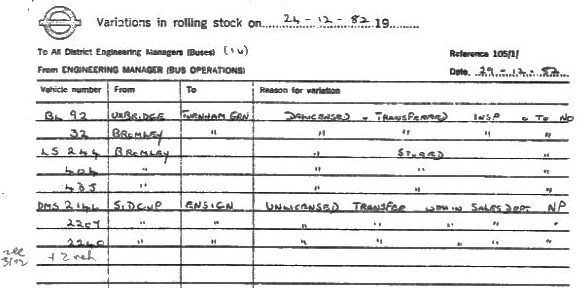 Variations in rolling stock on 24-12-82 19
To All District Engineering Managers (Buses) (14) Reference 105/1/
From ENGINEERING MANAGER (BUS OPERATIONS) Date 29-12-82
Vehicle number From To Reason for variation
BL 92 UXBRIDGE TURNHAM GRN DELICENSED & TRANSFERRED INSP & TO NO
32 BROMLEY " " " " "
LS 244 BROMLEY " STORED "
404 " " " "
435 " " " "
DMS 2144 SIDCUP ENSIGN UNLICENSED TRANSFER WITHIN SALES DEPT NP
2207 " " " " " " "
2240 " " " " " " "
+ 2 veh
see 31/12